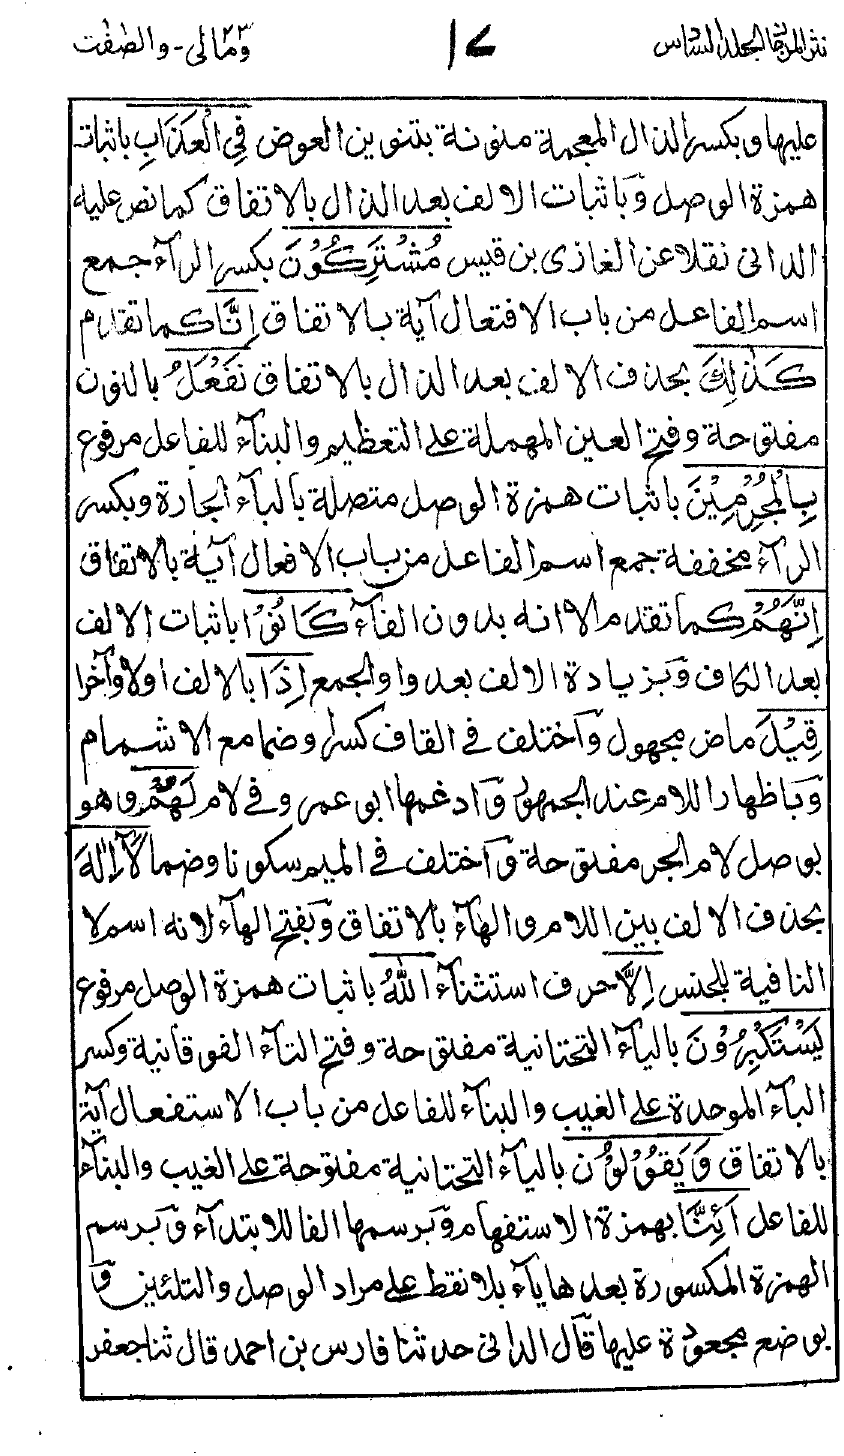 نثر المرجان المجلد السادس ١٧ ومالى ٢٣ - والصٰفٰت
عليها وبكسر الذال المعجمة منونة بتنوين العوض فِي الْعَذَابِ باثبات
همزة الوصل وَباثبات الالف بعد الذال بالاتفاق كما نص عليه
الدانى نقلا عن الغازى بن قيس مُشْتَرِكُوْنَ بكسر الرآء جمع
اسم الفاعل من باب الافتعال آية بالاتفاق اِنَّا كما تقدم
كَذٰلِكَ بحذف الالف بعد الذال بالاتفاق نَفْعَلُ بالنون
مفتوحة وفتح العين المهملة على التعظيم والبنآء للفاعل مرفوع
بِالْمُجْرِمِيْنَ باثبات همزة الوصل متصلة بالبآء الجارة وبكسر
الرآء مخففة جمع اسم الفاعل من باب الافعال آية بالاتفاق
اِنَّهُمْ كما تقدم الا انه بدون الفآء كَانُوْا باثبات الالف
بعد الكاف وَبزيادة الالف بعد واو الجمع اِذَا بالالف اولا وآخرا
قِيْلَ ماض مجهول وَآختلف في القاف كسرا وضما مع الاشمام
وَباظهار اللام عند الجمهور وَادغمها ابو عمرو في لام لَهُمْ وهو
بوصل لام الجر مفتوحة وَآختلف في الميم سكونا وضما لَآ اِلٰهَ
بحذف الالف بين اللام والهآء بالاتفاق وَبفتح الهآء لانه اسم لا
النافية للجنس اِلَّا حرف استثنآء اللّٰهُ باثبات همزة الوصل مرفوع
يَسْتَكْبِرُوْنَ باليآء التحتانية مفتوحة وفتح التآء الفوقانية وكسر
البآء الموحدة على الغيب والبنآء للفاعل من باب الاستفعال آية
بالاتفاق وَيَقُوْلُوْنَ باليآء التحتانية مفتوحة على الغيب والبنآء
للفاعل اَئِنَّا بهمزة الاستفهام وَبرسمها الفا للابتدآء وَبرسم
الهمزة المكسورة بعدها يآء بلا نقط على مراد الوصل والتليين وَ
بوضع مجعودة عليها قال الدانى حدثنا فارس بن احمد قال ثنا جعفر